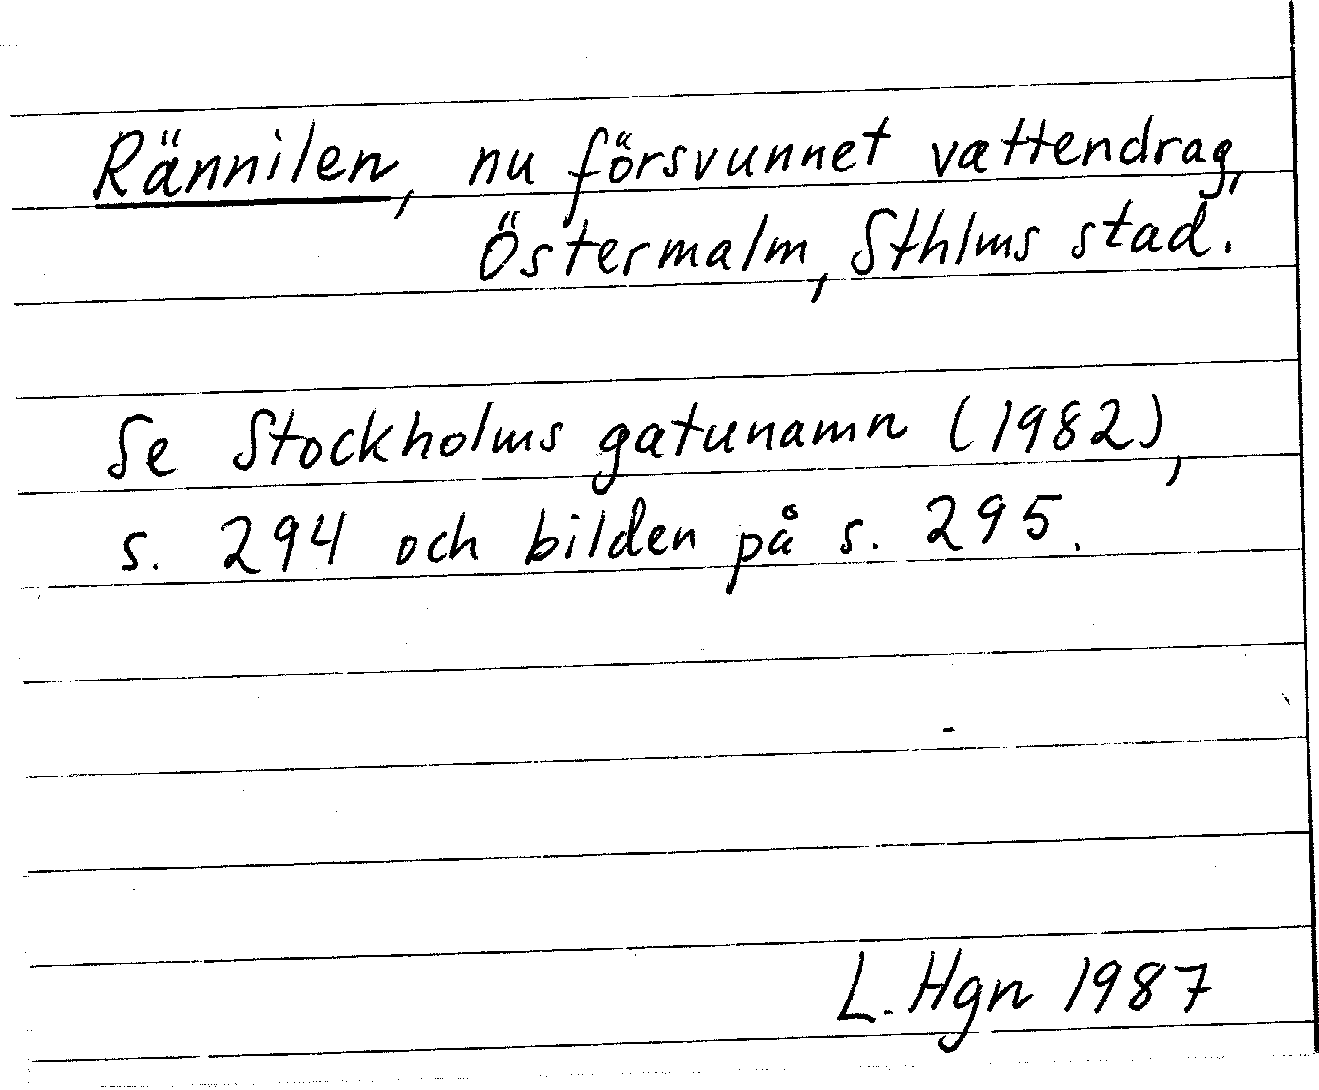 Rännilen, nu försvunnet vattendrag,
Östermalm, Sthlms stad.
Se Stockholms gatunamn (1982),
s. 294 och bilden på s. 295.
L. Hgn 1987